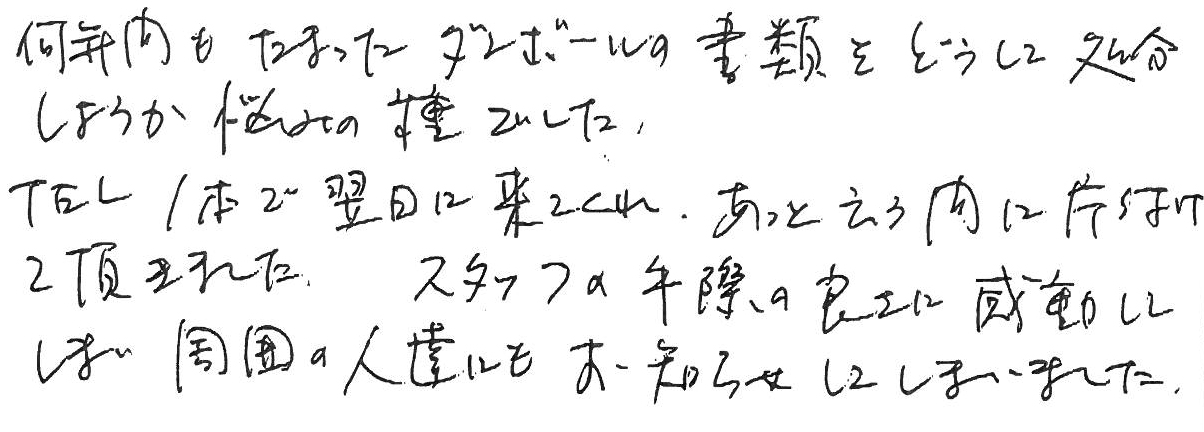 何年間もたまったダンボールの書類をどうして処分
しようか悩みの種でした。
TEL1本で翌日に来てくれ、あっと云う間に片付け
て頂きました。 スタッフの手際の良さに感動して
しまい周囲の人達にもお知らせしてしまいました。